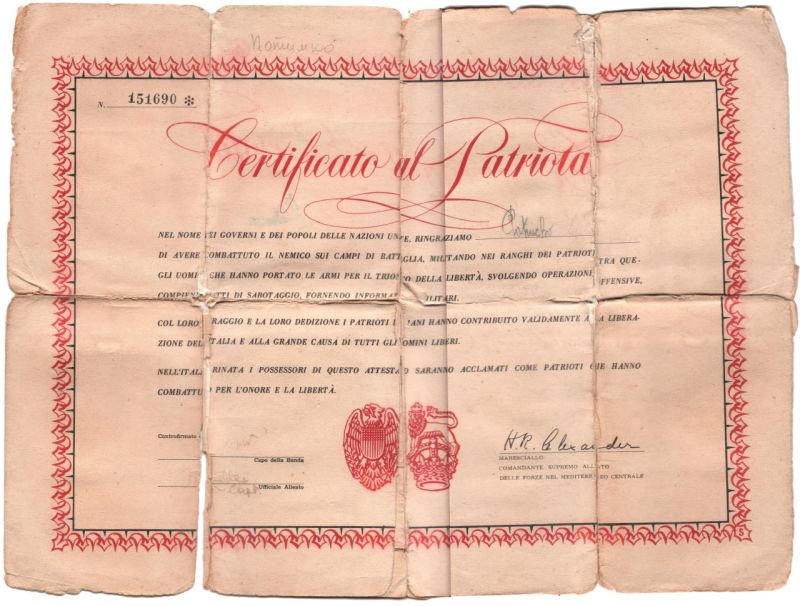 N. 151690 *
Certificato al Patriota
NEL NOME DEI GOVERNI E DEI POPOLI DELLE NAZIONI UNITE, RINGRAZIAMO
DI AVERE COMBATTUTO IL NEMICO SUI CAMPI DI BATTAGLIA, MILITANDO NEI RANGHI DEI PATRIOTI TRA QUE-
GLI UOMINI CHE HANNO PORTATO LE ARMI PER IL TRIONFO DELLA LIBERTÀ, SVOLGENDO OPERAZIONI OFFENSIVE,
COMPIENDO ATTI DI SABOTAGGIO, FORNENDO INFORMAZIONI MILITARI.
COL LORO CORAGGIO E LA LORO DEDIZIONE I PATRIOTI ITALIANI HANNO CONTRIBUITO VALIDAMENTE ALLA LIBERA-
ZIONE DELL'ITALIA E ALLA GRANDE CAUSA DI TUTTI GLI UOMINI LIBERI.
NELL'ITALIA RINATA I POSSESSORI DI QUESTO ATTESTATO SARANNO ACCLAMATI COME PATRIOTI CHE HANNO
COMBATTUTO PER L'ONORE E LA LIBERTÀ.
Controfirmato
Capo della Banda
Ufficiale Alleato
H.R. Alexander
MARESCIALLO
COMANDANTE SUPREMO ALLEATO
DELLE FORZE NEL MEDITERRANEO CENTRALE